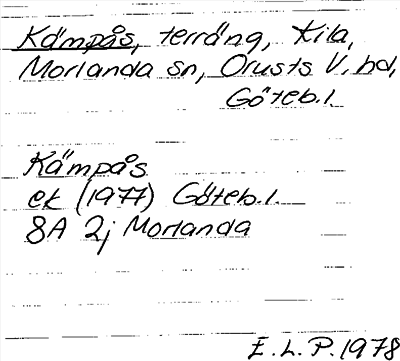 Kämpås, terräng, Kila,
Morlanda sn, Orusts V. hd,
Göteb.l.
Kämpås
ek (1977) Göteb.l.
8A 2j Morlanda
E.L.P.1978